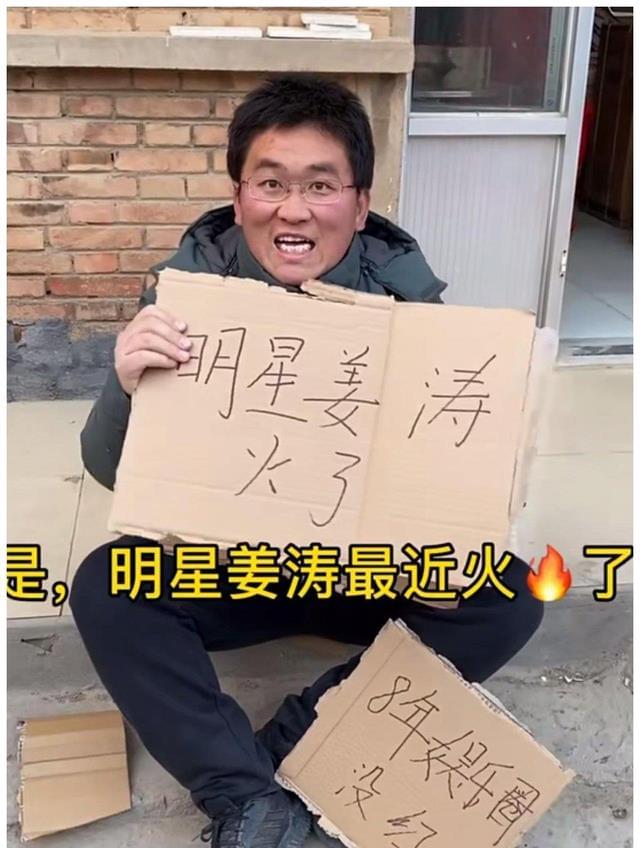 明星姜涛
火了
是，明星姜涛最近火🔥了
8年娱乐圈
没红